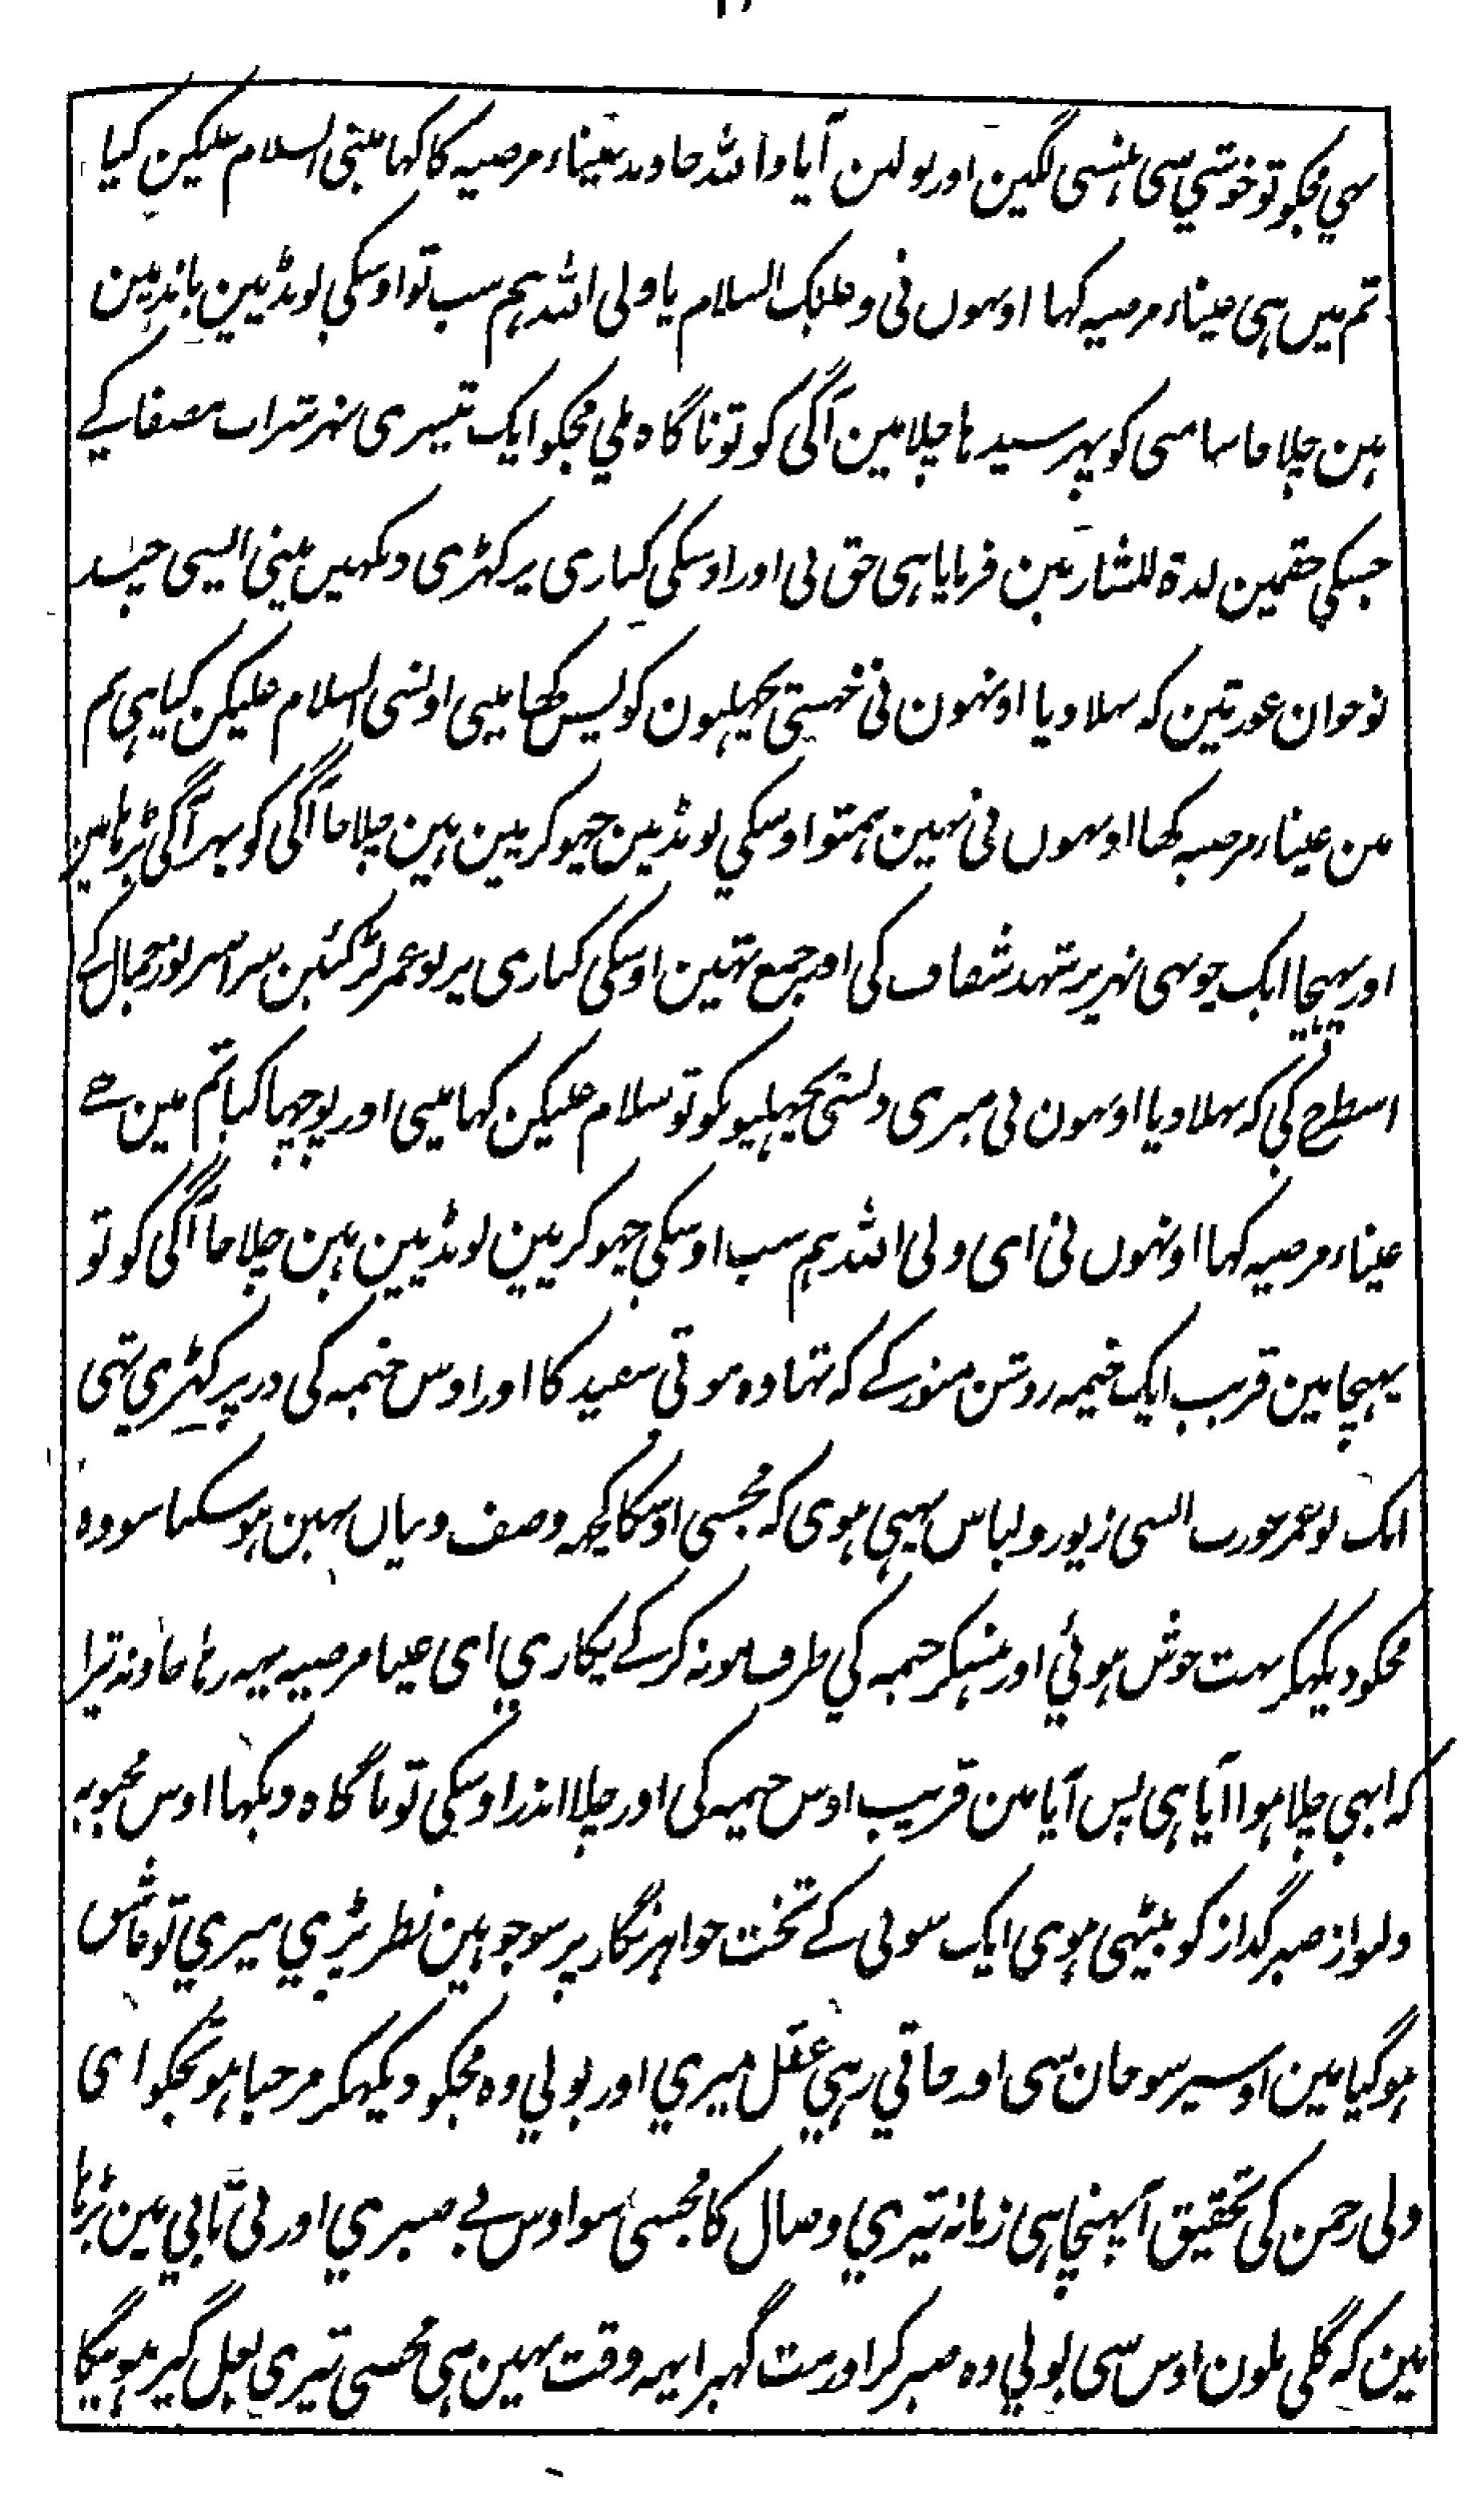 ہی مجکو تو خوشی سی ہنسی لگین اور بولین آیا واللہ خاوند عیناء مرضیہ کا کہا مینی السلام علیکن کیا
تم میں ہی عیناء مرضیہ کہا اونہوں نی وعلیک السلام یا ولی اللہ ہم سب تو اوسکی لونڈیین باندیین
ہین چلا جا سامہی کو پہر سیدہا چلا مین آگی کو تو ناگاہ ملی مجکو ایک تیسری نہر شراب مصفا کے
جسکی حقمین لذۃ للشاربین فرمایا ہی حق نی اور اوسکی کناری پر کہڑی دکہیں مینی ایسی چند
نوجوان عورتین کہ بہلا دیا اونہون نی پچہلیون کو پس کہا مینی اونسی السلام علیکن کیا ہی تم
من عیناء مرضیہ کہا اونہوں نی نہین ہمتو اوسکی لونڈیین چہوکریین ہین چلا جا آگی کو پہر آگی بڑہا مین
اور پہنچا ایک چوتہی نہر پر شہد شفاف کی اور جمع تہین اوسکی کناری پر نو عمر لڑکئین سراسر نور جمال کے
اسطرح کی کہ بہلا دیا اونہون نی میری دلسی پچہلیو کو تو سلام علیکن کہا مینی اور پوچہا کیا تم مین سے
عیناء مرضیہ کہا اونہوں نی ای ولی اللہ ہم سب اوسکی چہوکریین لونڈیین ہین چلا جا آگی کو تو
پہنچا مین قریب ایک خیمہ روشن منور کے کہ تہا وہ موتی سفید کا اور اوس خیمہ کی در پر کہڑی تہی
ایک نوعمر عورت ایسی زیور و لباس پہنی ہوی کہ مجسی اوسکا کچہ وصف و بیاں نہین ہو سکتا سو وہ
مجکو دیکہکر بہت خوش ہوئی اور ہنسکر خیمہ کی طرف مونہ کر کے پکاری ای عینا مرضیہ یہہ رہا خاوند تیرا
کہ ابہی چلا ہوا آیا ہی پس آیا مین قریب اوس خیمہ کی اور چلا اندر اوسکی تو ناگاہ دیکہا اوس محبوبہ
دلنواز صبر گداز کو بیٹہی ہوی ایک سونی کے تخت جواہر نگار پر سوجوہین نظر پڑی میری تو عاشق
ہوگیا مین اوسپر سو جان سی اور جاتی رہی عقل میری اور بولی وہ مجکو دیکہکر مرحبا ہو تجکو ای
ولی رحمن کی تحقیق آپہنچا ہی زمانہ تیری وصال کا مجسی سو اوس بے صبری اور بی تابی مین بڑہا
مین کہ گلی ملون اوس سی بولی وہ صبر کر اور مت گہبرا یہہ وقت نہین ہی مجسی تیری بغل گیر ہونیکا